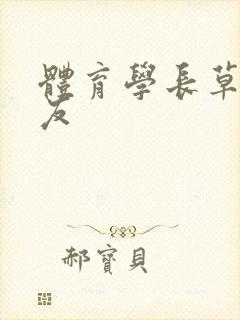 體育學長草
友
郝寶貝